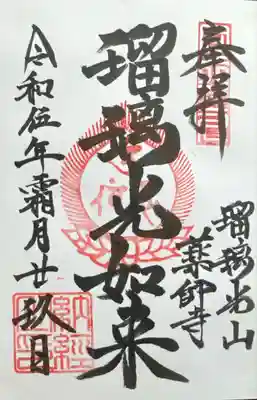 奉拝
瑠璃光山
薬師寺
瑠璃光如来
令和伍年霜月廿玖日